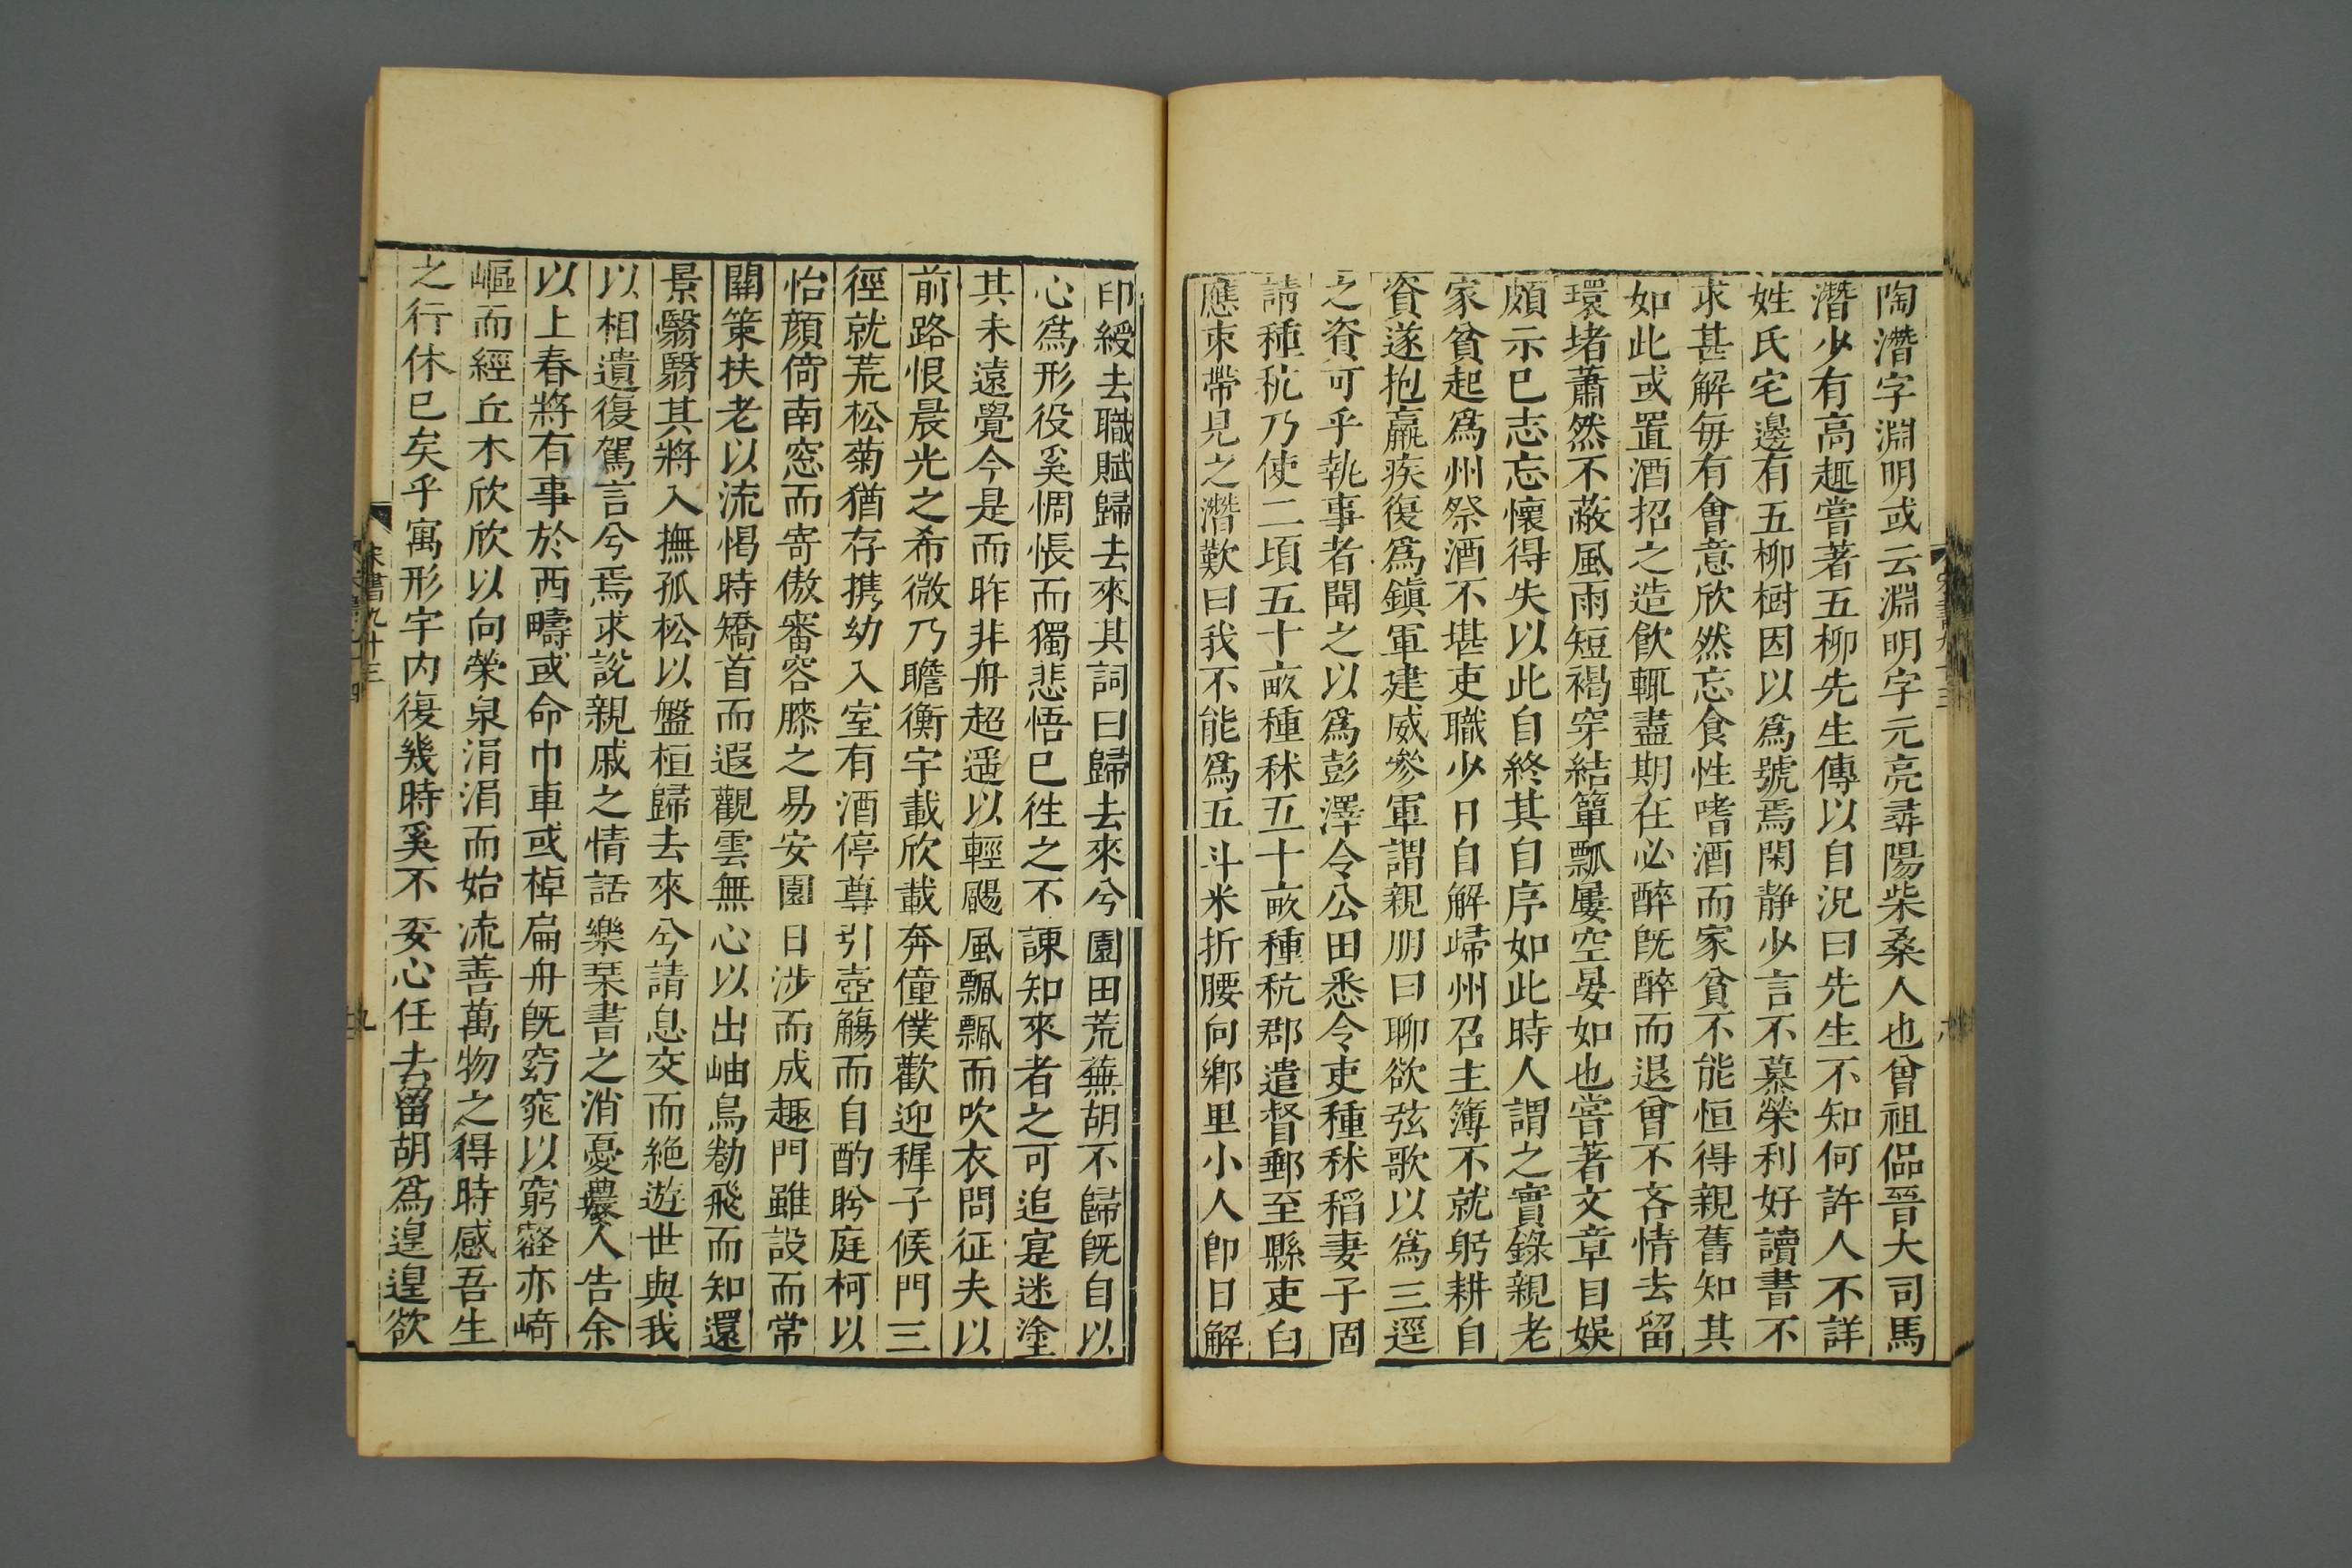 陶潛字淵明或云淵明字元亮尋陽柴桑人也曾祖侃晉大司馬
潛少有高趣嘗著五柳先生傳以自況曰先生不知何許人不詳
姓氏宅邊有五柳樹因以爲號焉閑静少言不慕榮利好讀書不
求甚解每有會意欣然忘食性嗜酒而家貧不能恒得親舊知其
如此或置酒招之造飲輒盡期在必醉既醉而退曾不吝情去留
環堵蕭然不蔽風雨短褐穿結簞瓢屢空晏如也嘗著文章自娛
頗示已志忘懷得失以此自終其自序如此時人謂之實錄親老
家貧起爲州祭酒不堪吏職少日自解歸州召主簿不就躬耕自
資遂抱羸疾復爲鎮軍建威參軍謂親朋曰聊欲弦歌以爲三逕
之資可乎執事者聞之以爲彭澤令公田悉令吏種秫稻妻子固
請種秔乃使二頃五十畝種秫五十畝種秔郡遣督郵至縣吏白
應束帶見之潛歎曰我不能爲五斗米折腰向鄉里小人即日解
印綬去職賦歸去來其詞曰歸去來兮園田荒蕪胡不歸既自以
心爲形役奚惆悵而獨悲悟已往之不諫知來者之可追寔迷塗
其未遠覺今是而昨非舟超遥以輕颺風飄飄而吹衣問征夫以
前路恨晨光之希微乃瞻衡宇載欣載奔僮僕歡迎稚子候門三
徑就荒松菊猶存携幼入室有酒停尊引壺觴而自酌眄庭柯以
怡顔倚南窓而寄傲審容膝之易安園日涉而成趣門雖設而常
關策扶老以流愒時矯首而遐觀雲無心以出岫鳥勌飛而知還
景翳翳其將入撫孤松以盤桓歸去來兮請息交而絶遊世與我
以相遺復駕言兮焉求說親戚之情話樂琴書之消憂農人告余
以上春將有事於西疇或命巾車或棹扁舟既窈窕以窮壑亦崎
嶇而經丘木欣欣以向榮泉涓涓而始流善萬物之得時感吾生
之行休已矣乎寓形宇内復幾時奚不委心任去留胡爲遑遑欲
宋書九十三
九